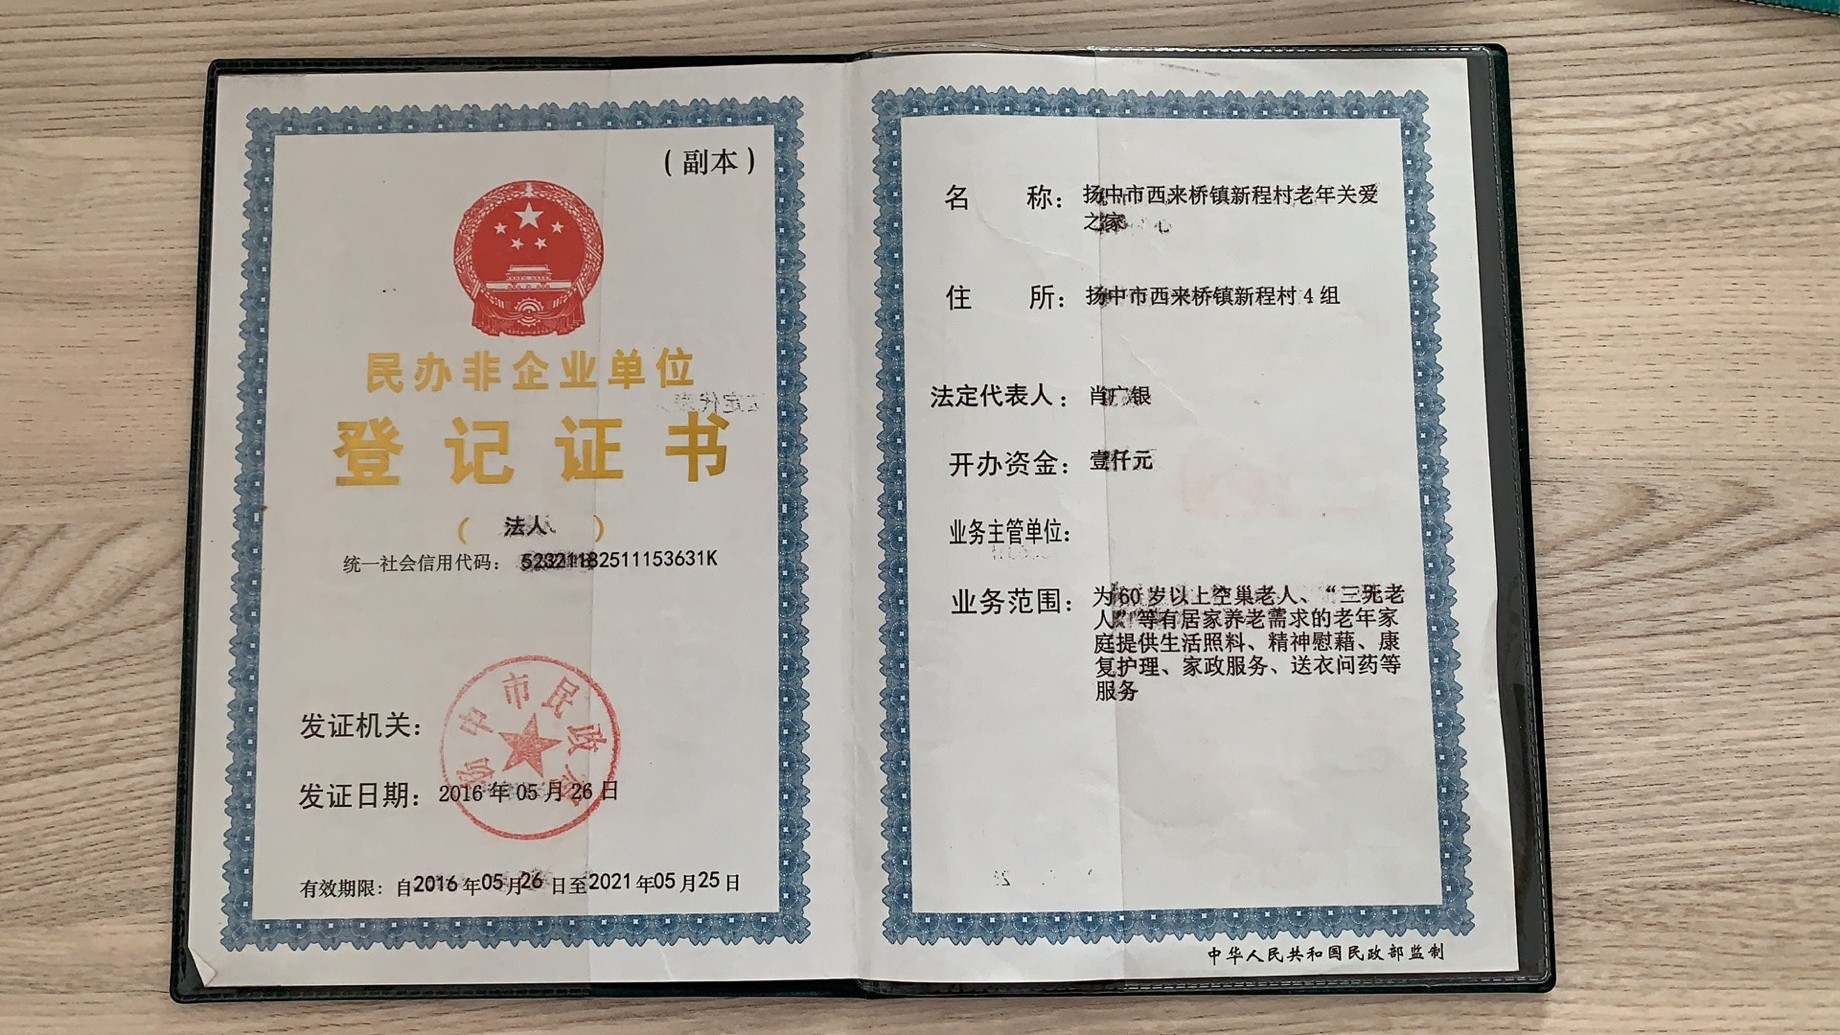 （副本）
民办非企业单位
登记证书
（法人）
统一社会信用代码： 52321182511153631K
发证机关：
扬中市民政局
发证日期：2016年05月26日
有效期限：自2016年05月26日至2021年05月25日
名 称：扬中市西来桥镇新程村老年关爱
之家
住 所：扬中市西来桥镇新程村4组
法定代表人：肖广银
开办资金：壹仟元
业务主管单位：
业务范围：为60岁以上空巢老人、“三无老
人”等有居家养老需求的老年家
庭提供生活照料、精神慰藉、康
复护理、家政服务、送衣问药等
服务
中华人民共和国民政部监制